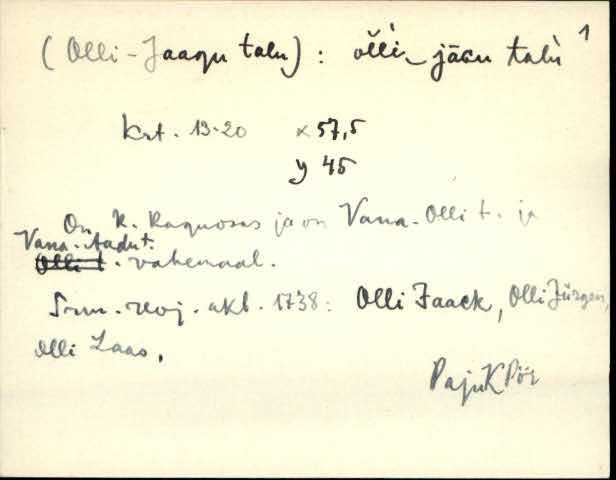 1
(Olli-Jaagu talu) : ollì-jāgu talù
krt. 13-20 x 57,5
y 45
On k. Kaguosas ja on Vana-Olli t. ja
Vana-Aadu t.
Olli t. vahemaal.
adr. rev. akt. 1738: Olli Jaack, Olli Jürgen,
Olli Laas.